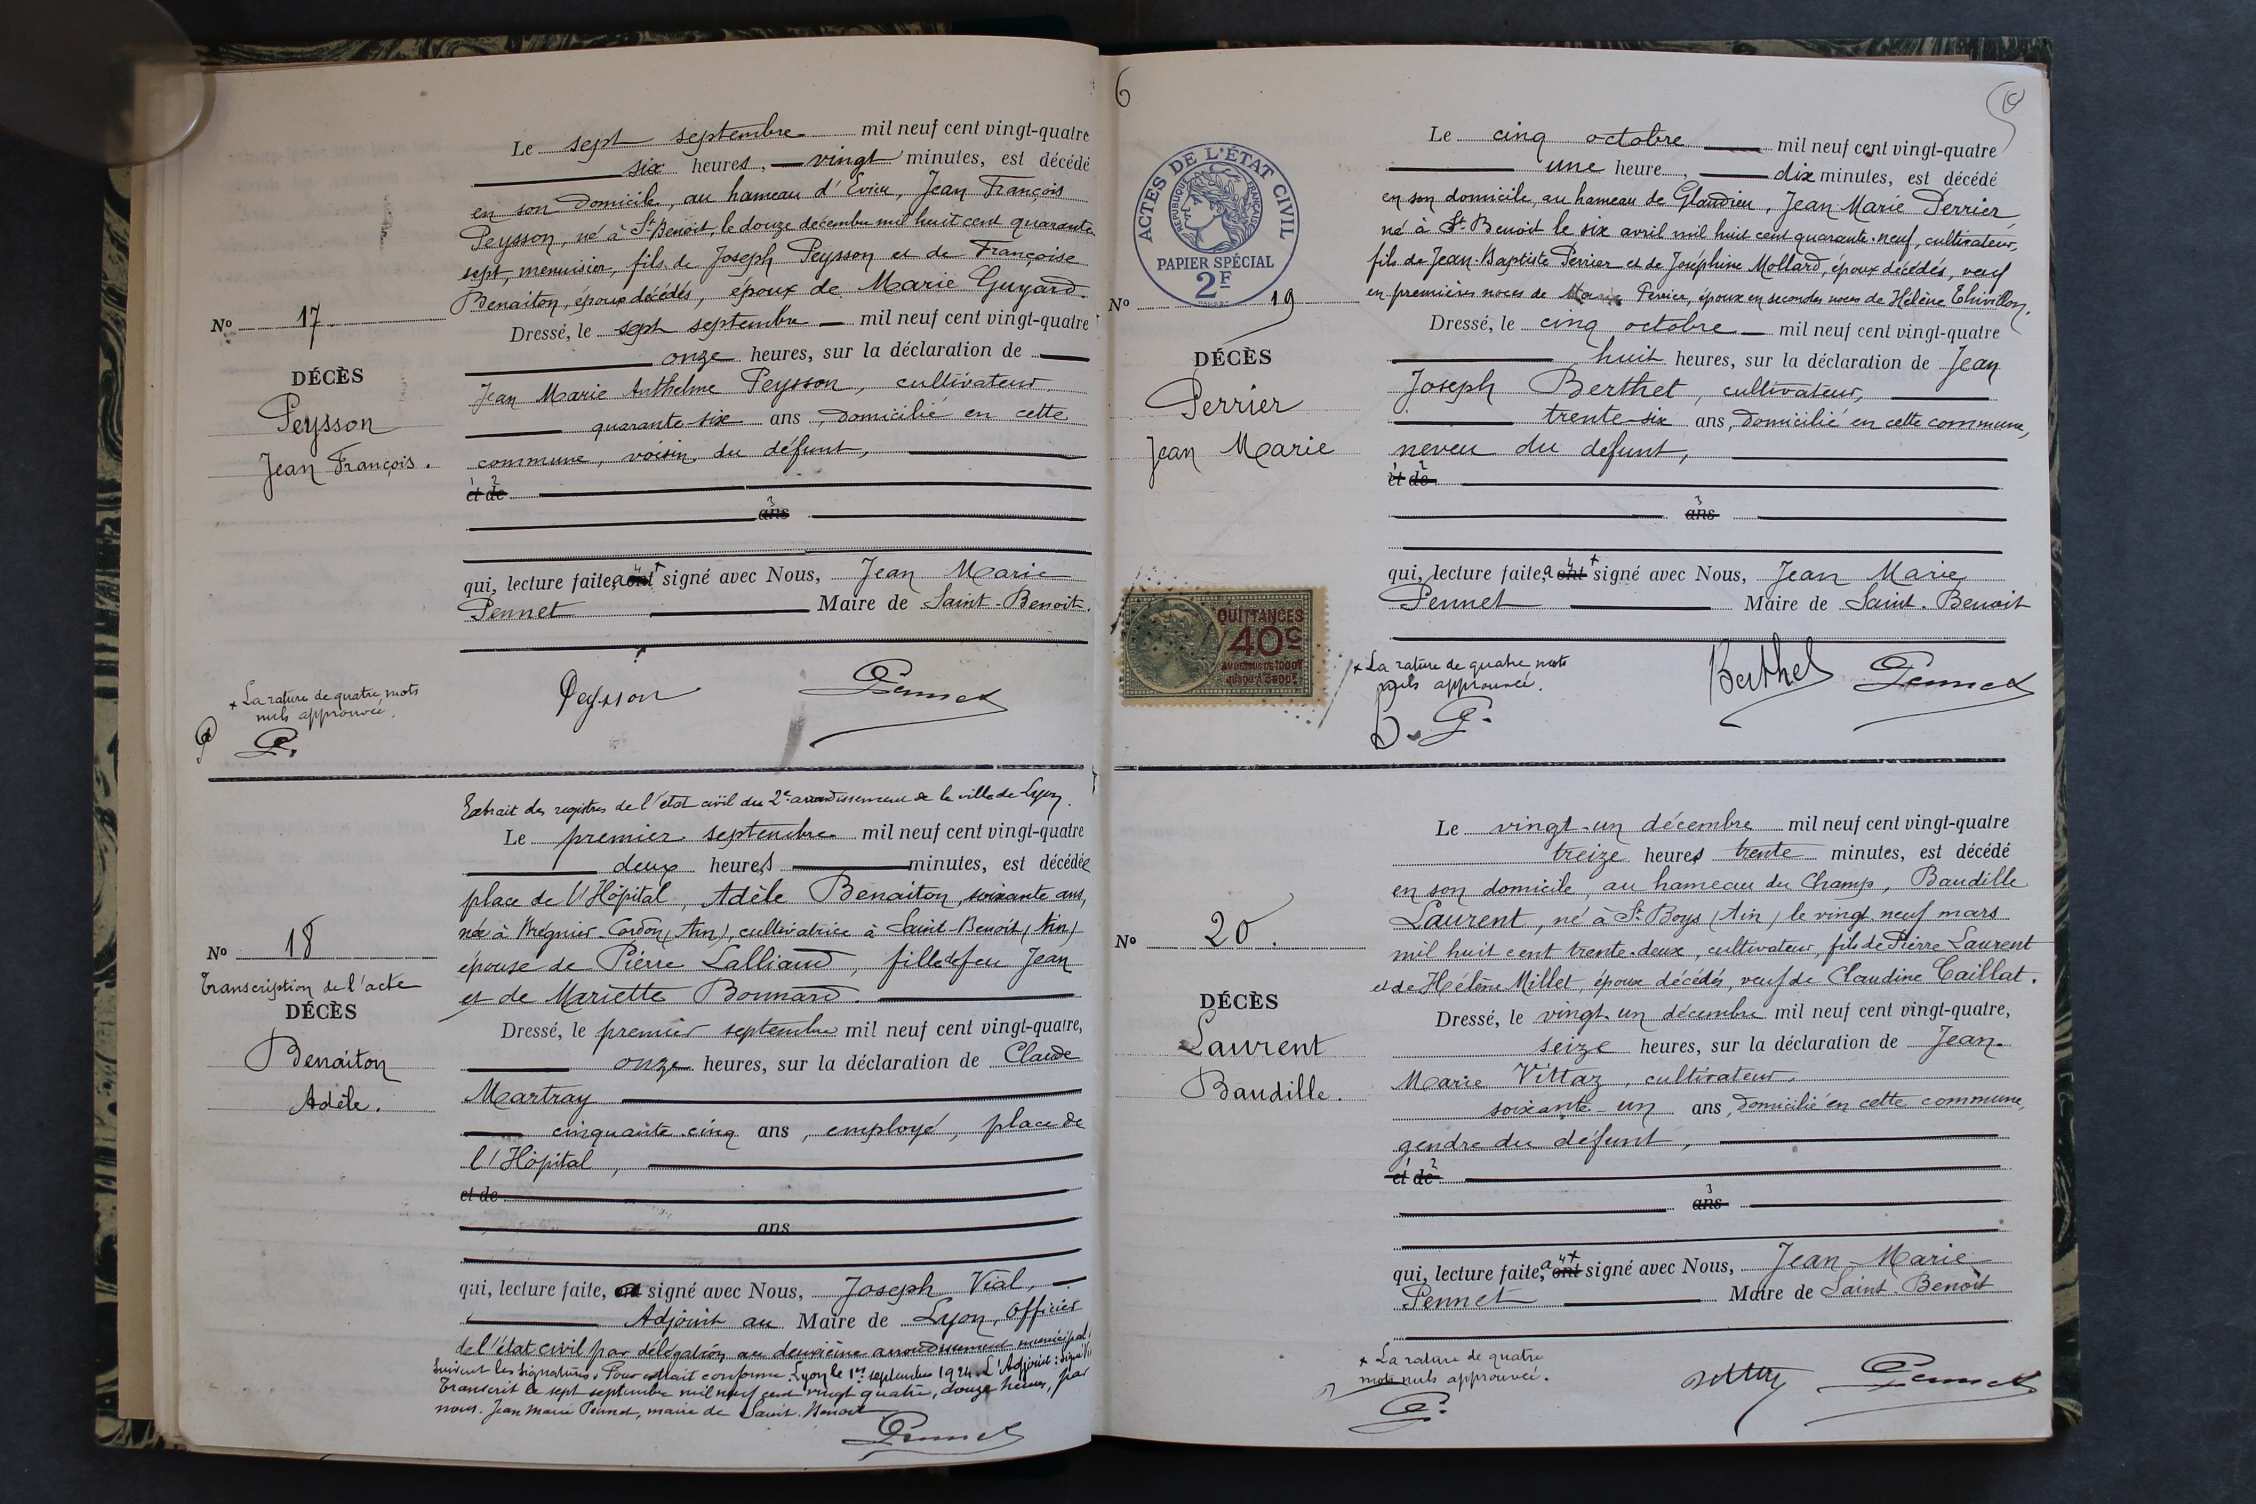 Le sept septembre mil neuf cent vingt-quatre
six heures, vingt minutes, est décédé
en son domicile, au hameau d'Evieu, Jean François
Peysson, né à St Benoit, le douze décembre mil huit cent quarante
sept, menuisier, fils de Joseph Peysson et de Françoise
Benaiton, époux décédés, époux de Marie Guyard.
Nº 17
Dressé, le sept septembre mil neuf cent vingt-quatre
onze heures, sur la déclaration de
DÉCÈS
Jean Marie Anthelme Peysson, cultivateur
Peysson
quarante-six ans, domicilié en cette
Jean François.
commune, voisin du défunt,
1 2
et de
3
ans
qui, lecture faite, a ont 4 + signé avec Nous, Jean Marie
Pennet Maire de Saint-Benoit.
+ La rature de quatre mots
nuls approuvée.
P. P.
Peysson Pennet
Extrait des registres de l'état civil du 2e arrondissement de la ville de Lyon.
Le premier septembre mil neuf cent vingt-quatre
deux heures minutes, est décédée
place de l'Hôpital, Adèle Benaiton, soixante ans,
née à Brégnier-Cordon (Ain), cultivatrice à Saint-Benoit (Ain)
Nº 18
épouse de Pierre Lalliand, fille de feu Jean
Transcription de l'acte
et de Mariette Bonnard.
DÉCÈS
Dressé, le premier septembre mil neuf cent vingt-quatre,
Benaiton
onze heures, sur la déclaration de Claude
Adèle.
Martray
cinquante-cinq ans, employé, place de
l'Hôpital,
et de
ans
qui, lecture faite, a signé avec Nous, Joseph Vial,
Adjoint au Maire de Lyon, officier
de l'état civil par délégation au deuxième arrondissement municipal
Suivent les signatures. Pour extrait conforme. Lyon le 1er septembre 1924. L'Adjoint: signé Vi
Transcrit le sept septembre mil neuf cent vingt quatre, douze heures, par
nous. Jean Marie Pennet, maire de Saint-Benoit
Pennet
6
ACTES DE L'ÉTAT CIVIL
RÉPUBLIQUE FRANÇAISE
PAPIER SPÉCIAL
2F
Le cinq octobre mil neuf cent vingt-quatre
une heure, dix minutes, est décédé
en son domicile, au hameau de Glandieu, Jean Marie Perrier
né à St-Benoit le six avril mil huit cent quarante-neuf, cultivateur,
fils de Jean-Baptiste Perrier et de Joséphine Mollard, époux décédés, veuf
en premières noces de Marie Perrier, époux en secondes noces de Hélène Thivillon.
Nº 19
Dressé, le cinq octobre mil neuf cent vingt-quatre
DÉCÈS
huit heures, sur la déclaration de Jean
Perrier
Joseph Berthet, cultivateur,
Jean Marie
trente-six ans, domicilié en cette commune,
neveu du défunt,
1 2
et de
3
ans
qui, lecture faite, a ont 4 + signé avec Nous, Jean Marie
Pennet Maire de Saint-Benoit
QUITTANCES
40c
+ La rature de quatre mots
nuls approuvée.
B. P.
Berthet Pennet
Le vingt-un décembre mil neuf cent vingt-quatre
treize heures trente minutes, est décédé
en son domicile, au hameau du Champ, Baudille
Laurent, né à St Boys (Ain) le vingt neuf mars
mil huit cent trente-deux, cultivateur, fils de Pierre Laurent
et de Hélène Millet, époux décédés, veuf de Claudine Caillat.
Nº 20.
DÉCÈS
Dressé, le vingt-un décembre mil neuf cent vingt-quatre,
Laurent
seize heures, sur la déclaration de Jean-
Baudille.
Marie Vittaz, cultivateur,
soixante-un ans, domicilié en cette commune,
gendre du défunt,
1 2
et de
3
ans
qui, lecture faite, a ont 4 + signé avec Nous, Jean-Marie
Pennet Maire de Saint-Benoit
+ La rature de quatre
mots nuls approuvée.
P.
Vittaz Pennet